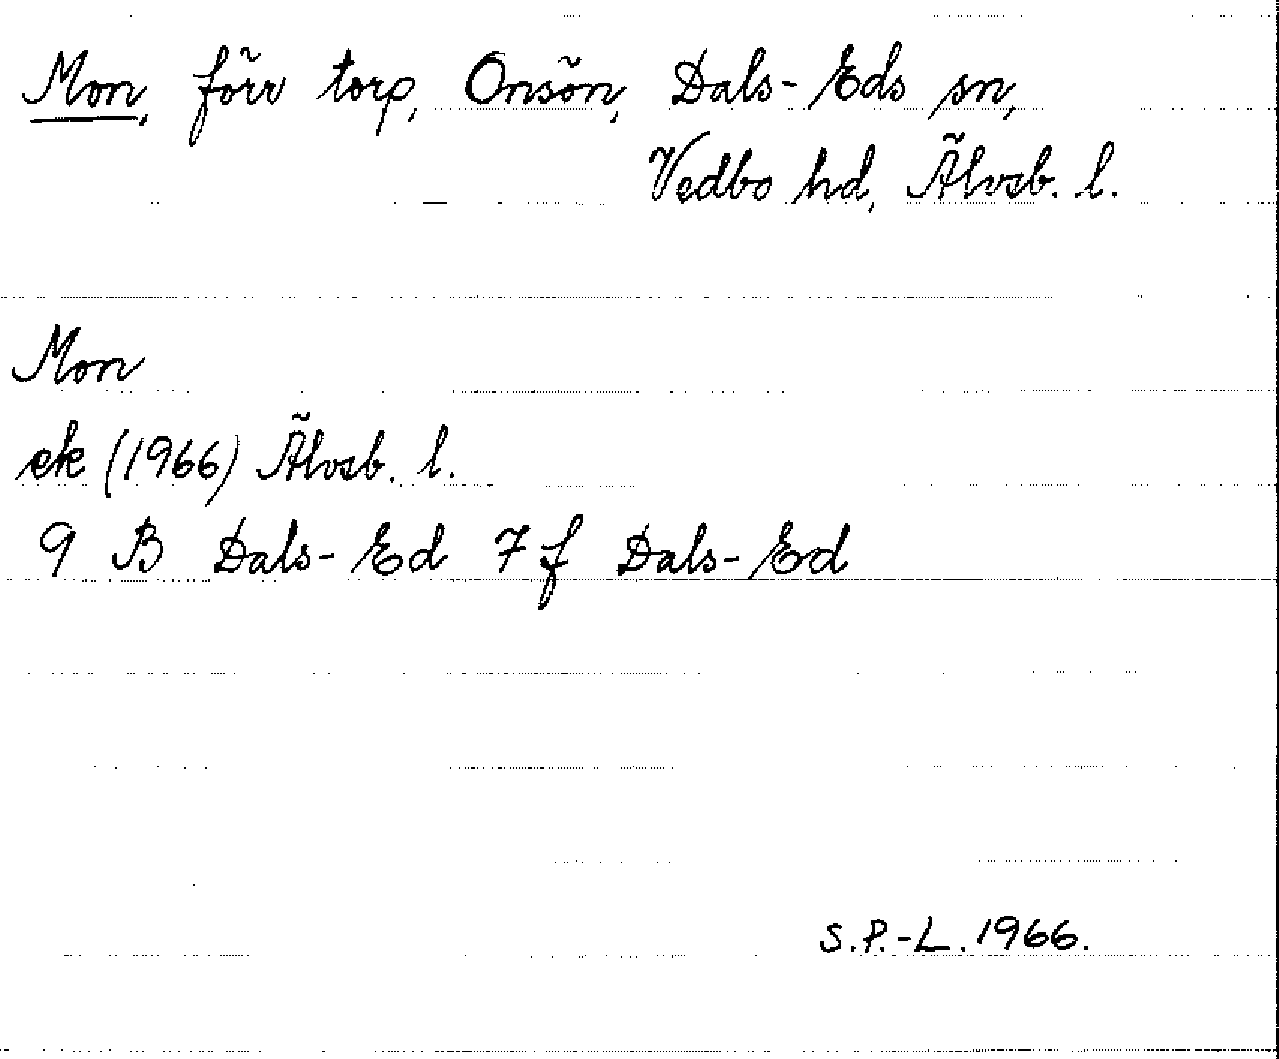 Mon, förv torp, Onsön, Dals-Eds sn,
Vedbo hd, Älvsb. l.
Mon
ek (1966) Älvsb. l.
9 B Dals-Ed 7 f Dals-Ed
S.P.-L. 1966.